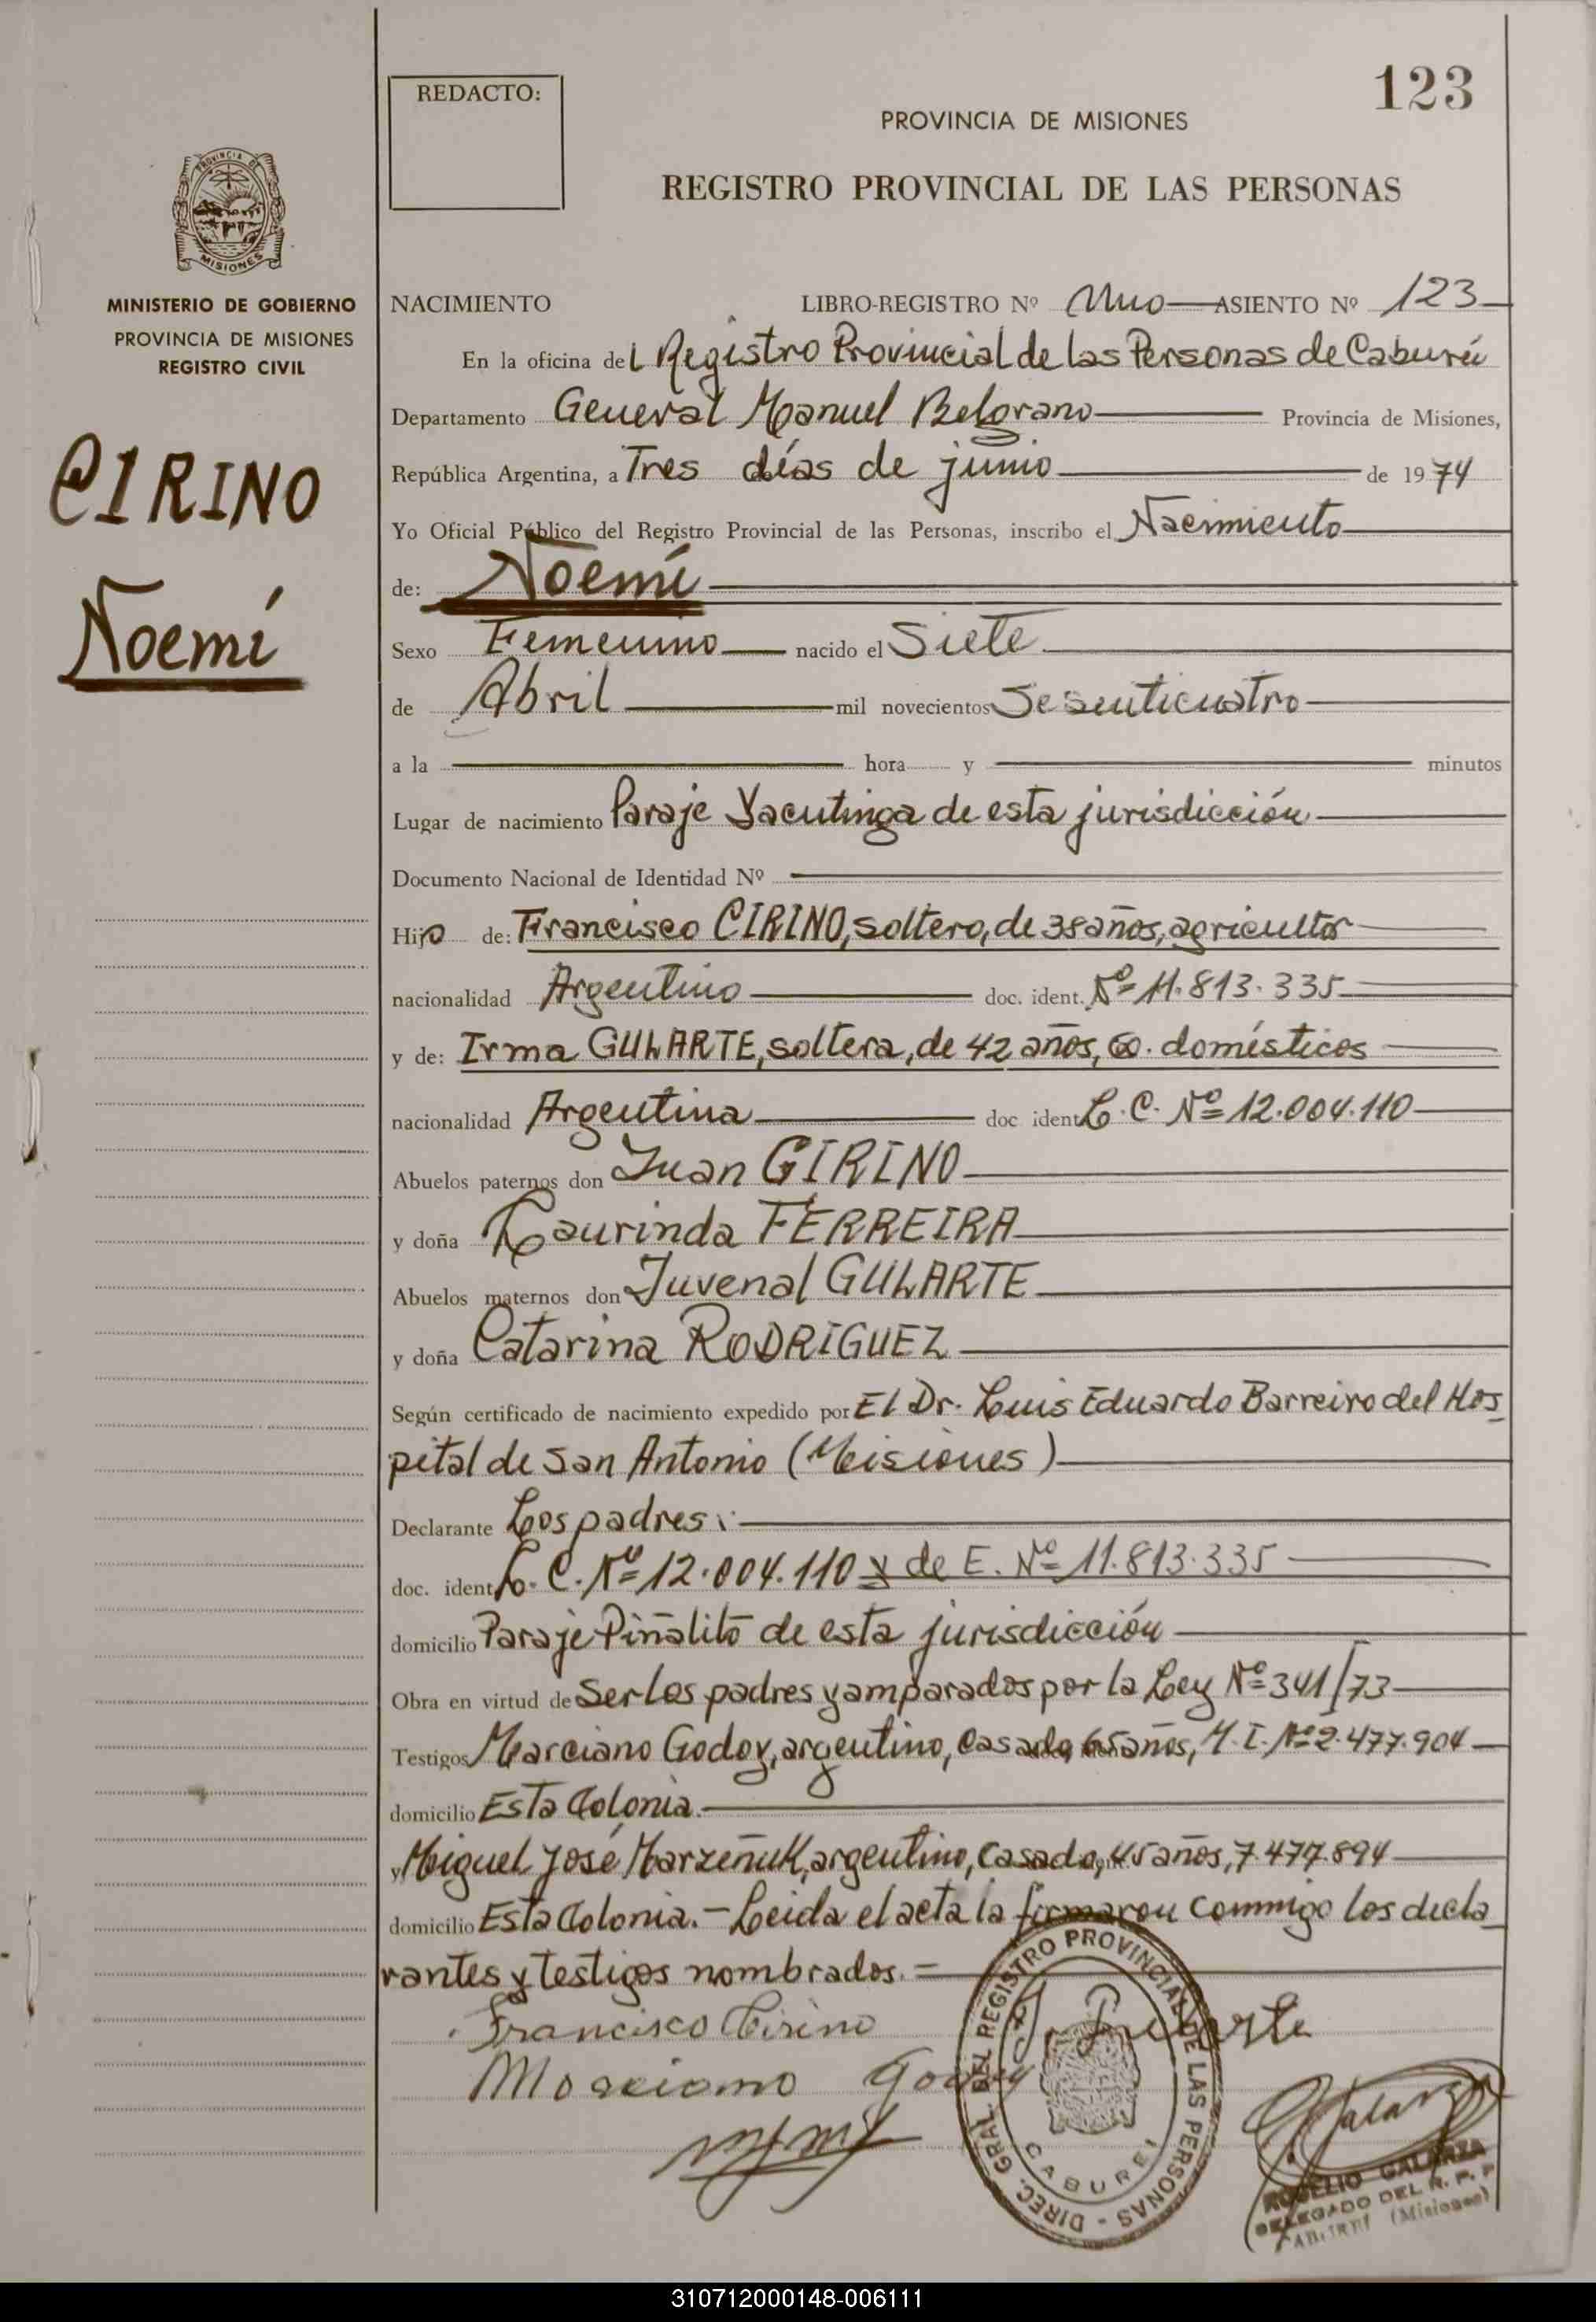 123
REDACTO:
PROVINCIA DE MISIONES
REGISTRO PROVINCIAL DE LAS PERSONAS
PROVINCIA DE
MISIONES
MINISTERIO DE GOBIERNO
PROVINCIA DE MISIONES
REGISTRO CIVIL
CIRINO
Noemí
NACIMIENTO LIBRO-REGISTRO Nº Uno ASIENTO Nº 123
En la oficina del Registro Provincial de las Personas de Cabureí
Departamento General Manuel Belgrano Provincia de Misiones,
República Argentina, a Tres días de junio de 1974
Yo Oficial Público del Registro Provincial de las Personas, inscribo el Nacimiento
de: Noemí
Sexo Femenino nacido el Siete
de Abril mil novecientos Sesenticuatro
a la hora y minutos
Lugar de nacimiento Paraje Yacutinga de esta jurisdicción
Documento Nacional de Identidad Nº
Hijo de: Francisco CIRINO, soltero, de 38 años, agricultor
nacionalidad Argentino doc. ident. Nº 11.813.335
y de: Irma GULARTE, soltera, de 42 años, domésticos
nacionalidad Argentina doc ident L. C. Nº 12.004.110
Abuelos paternos don Juan CIRINO
y doña Laurinda FERREIRA
Abuelos maternos don Juvenal GULARTE
y doña Catarina RODRIGUEZ
Según certificado de nacimiento expedido por El Dr. Luis Eduardo Barreiro del Hos
pital de San Antonio (Misiones)
Declarante Los padres:
doc. ident L. C. Nº 12.004.110 y de E. Nº 11.813.335
domicilio Paraje Piñalito de esta jurisdicción
Obra en virtud de Ser los padres y amparados por la Ley Nº 341/73
Testigos Marciano Godoy, argentino, casado, 65 años, M. I. Nº 2.477.904
domicilio Esta Colonia.
y Miguel José Marzeñuk, argentino, casado, 45 años, 7.477.894
domicilio Esta Colonia.- Leida el acta la firmaron conmigo los decla
rantes y testigos nombrados.=
Francisco Cirino
Marciano Godoy
DIREC. GRAL. DEL REGISTRO PROVINCIAL DE LAS PERSONAS -
CABUREI
Galarza
ROGELIO GALARZA
DELEGADO DEL R. P. P
CABUREI (Misiones)
310712000148-006111